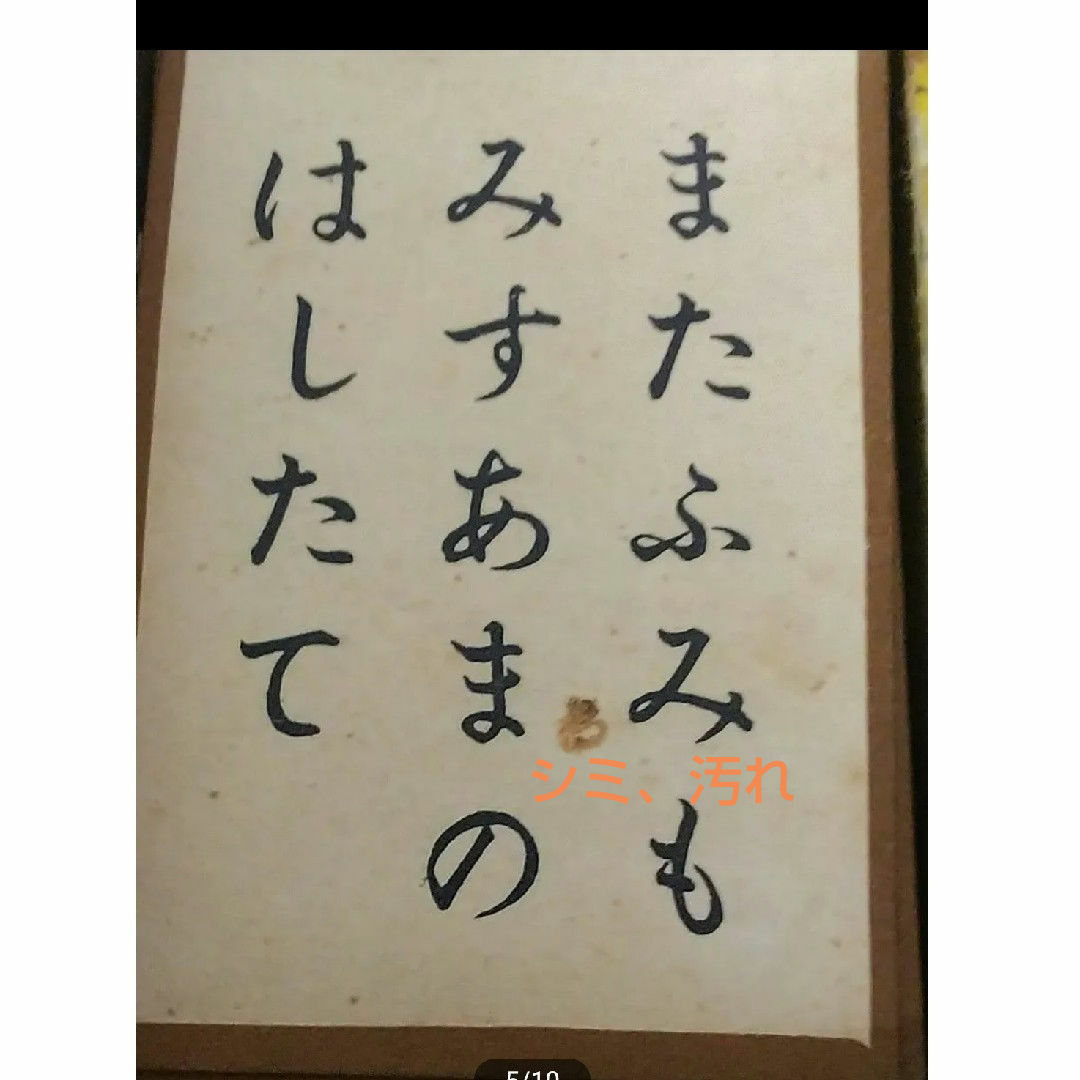 またふみも
みすあまの
はしたて
シミ、汚れ
5/10